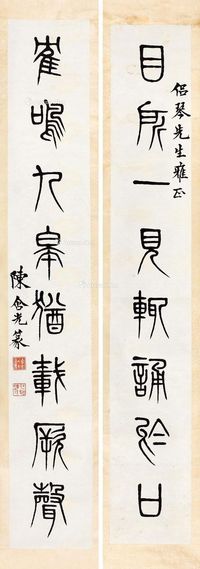 侶琴先生雅正
目所一見輒誦於口
隺鳴九皋猶載厥聲
陳含光篆